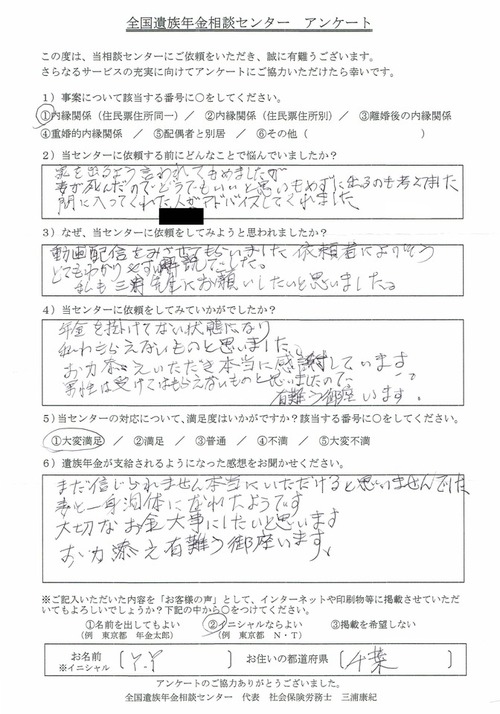 全国遺族年金相談センター アンケート
この度は、当相談センターにご依頼をいただき、誠に有難うございます。
さらなるサービスの充実に向けてアンケートにご協力いただけたら幸いです。
1）事案について該当する番号に○をしてください。
①内縁関係（住民票住所同一）／ ②内縁関係（住民票住所別）／ ③離婚後の内縁関係
④重婚的内縁関係 ／ ⑤配偶者と別居 ／ ⑥その他（ ）
2）当センターに依頼する前にどんなことで悩んでいましたか？
家を出るよう言われてもめましたが
妻が死んだのでどうでもいいと思いもめずに出るのも考えてました
間に入ってくれた人がアドバイスしてくれました
3）なぜ、当センターに依頼をしてみようと思われましたか？
動画配信をみさせてもらいました 依頼者により
とてもわかりやすい解説でした。
私も三浦先生にお願いしたいと思いました。
4）当センターに依頼をしてみていかがでしたか？
年金を掛けてない状態になり
私はもらえないものと思いました。
お力添えいただき本当に感謝しています
男性は受けてはもらえないものと思いましたので、
有難う御座います。
5）当センターの対応について、満足度はいかがですか？該当する番号に○をしてください。
①大変満足 ／ ②満足 ／ ③普通 ／ ④不満 ／ ⑤大変不満
6）遺族年金が支給されるようになった感想をお聞かせください。
まだ信じられません本当にいただけると思いませんでした
妻と一身同体になれたようです
大切なお金大事にしたいと思います
お力添え有難う御座います。
※ご記入いただいた内容を「お客様の声」として、インターネットや印刷物等に掲載させていただ
いてもよろしいでしょうか？下記の中から○をつけてください。
①名前を出してもよい ②イニシャルならよい ③掲載を希望しない
（例 東京都 年金太郎） （例 東京都 N・T）
お名前 （Y.Y ） お住いの都道府県 （千葉 ）
※イニシャル
アンケートのご協力ありがとうございました。
全国遺族年金相談センター 代表 社会保険労務士 三浦康紀